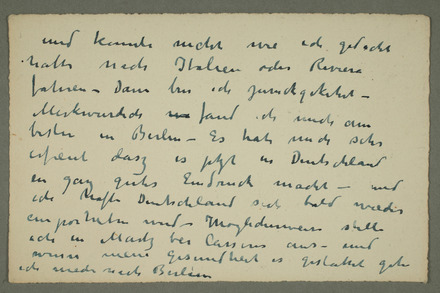 und konnte nicht wie ich gedacht
hatte nach Italien oder Riviera
fahren – Dann bin ich zurückgekehrt –
Merkwürdich fand ich mich am
besten in Berlin – Es hat mich sehr
erfreut dasz es jetzt in Deutschland
en ganz guter Eindruck macht – und
ich hoffe Deutschland sich bald wieder
emporheben und – Möglicherweise stelle
ich in Martz bei Cassirer aus – und
wenn meine Gesundheit es gestattet gehe
ich wieder nach Berlin